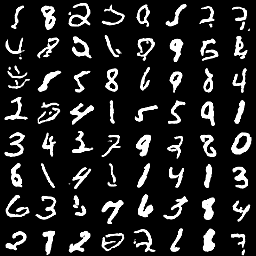 8 2 0 5 2 7
4 8 2 6 8 9 5
8 5 8 6 9 8 4
1 4 1 5 5 9 1
3 4 3 7 9 2 8 0
6 1 4 1 4 1 3
6 3 7 6 3 8 4
2 9 2 0 2 1 8 7